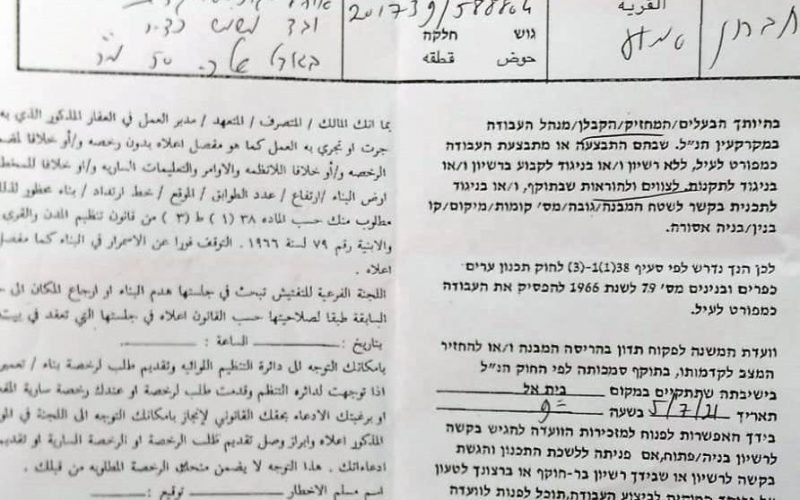 חברון
القرية
סמוע
201739/588804
גוש חלקה
حوض قطعه
50
בהיותך הבעלים/המחזיק/הקבלן/מנהל העבודה
במקרקעין הנ"ל. שבהם התבצעה או מתבצעת העבודה
כמפורט לעיל, ללא רשיון ו/או בניגוד לקבוע ברשיון ו/או
בניגוד לתקנות, לצווים ולהוראות שבתוקף, ו/או בניגוד
לתכנית בקשר לשטח המבנה/גובה/מס' קומות/מיקום/קו
בנין/בניה אסורה.
לכן הנך נדרש לפי סעיף 38(1)1-(3) לחוק תכנון ערים
כפרים ובנינים מס' 79 לשנת 1966 להפסיק את העבודה
כמפורט לעיל.
וועדת המשנה לפקוח תדון בהריסה המבנה ו/או להחזיר
המצב לקדמותו, בתוקף סמכותה לפי החוק הנ"ל
בישיבתה שתתקיים במקום בית אל
תאריך 5/7/21 בשעה 9
בידך האפשרות לפנוח למזכירות הוועדה להגיש בקשה
לרשיון בניה/פתוח,אם פניתה ללשכת התכנון והגשת
בקשה לרשיון או שבידך רשיון בר-חוקף או ברצונך לטעון
לביצוע העבודה,תוכל לפנות לוועדה
بما انك المالك / المتصرف / المتعهد / مدير العمل في العقار المذكور الذي به
جرت او تجري به العمل كما هو مفصل اعلاه بدون رخصه و/أو خلافا
الرخصه و/أو خلافا للانظمه والاوامر والتعليمات الساريه و/او خلافا
ارض البناء /ارتفاع / عدد الطوابق / الموقع / خط ارتداد / بناء محظور
مطلوب منك حسب الماده ٣٨ (١) ط (٣) من قانون تنظيم المدن والقرى
والابنية رقم ٧٩ لسنة ١٩٦٦ . التوقف فورا عن الاسمرار في البناء كما
اعلاه .
اللجنة الفرعية للتفتيش تبحث في جلستها هدم البناء او ارجاع المكان
السابقة طبقا لصلاحيتها حسب القانون اعلاه في جلستها التي تعقد في
بتاريخ : الساعة :
بامكانك التوجه الى دائرة التنظيم اللوائيه وتقديم طلب لرخصة بناء /
اذا توجهت لدائره التنظم وقدمت طلب لرخصة او عندك رخصة سارية
او برغبتك الادعاء بحقك القانوني لإنجاز بامكانك التوجه الى اللجنة في
المذكور اعلاه وابراز وصل تقديم طلب الرخصة او الرخصة السارية او
ادعاءاتك . هذا التوجه لا يضمن منحك الرخصة المطلوبه من قبلك .
اسم مسلم الاخطار توقيع :